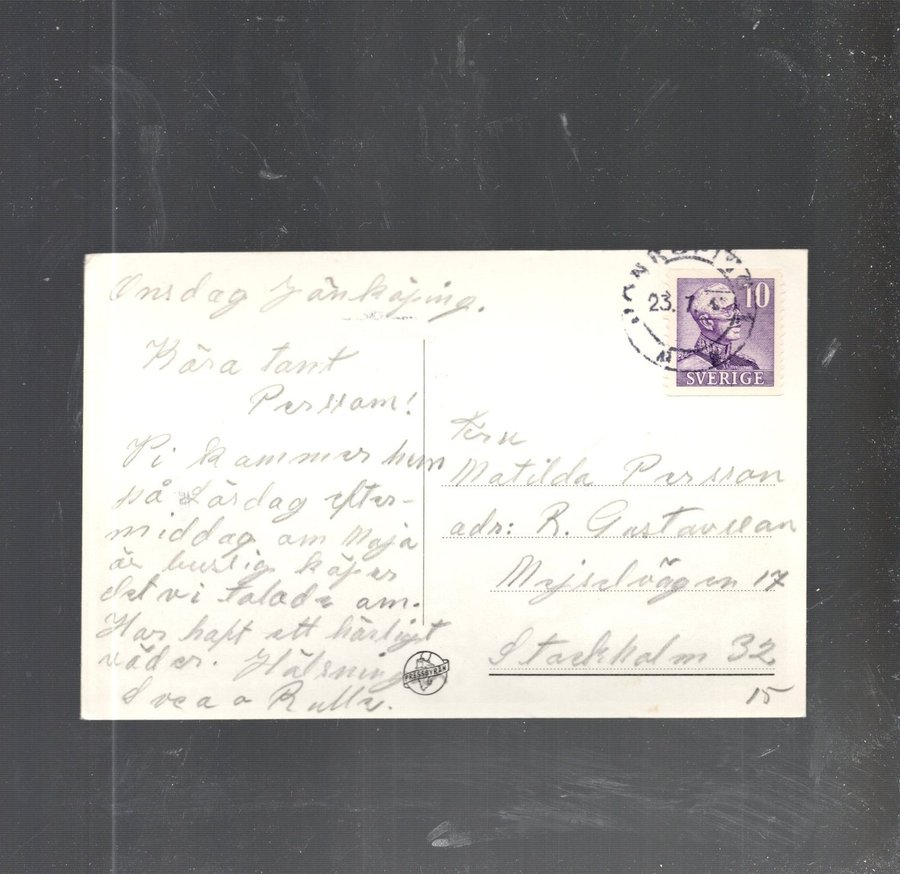 Onsdag Jönköping.
Kära tant
Persson!
Vi kommer hem
på Lördag efter-
middag om Maja
är busig köper
det vi talade om.
Har haft ett härligt
väder. Hälsning
Svea o Rulle.
PRESSBYRÅN
23. 7
10
SVERIGE
Fru
Matilda Persson
adr: R. Gustavsson
Mejselvägen 17
Stockholm 32
15